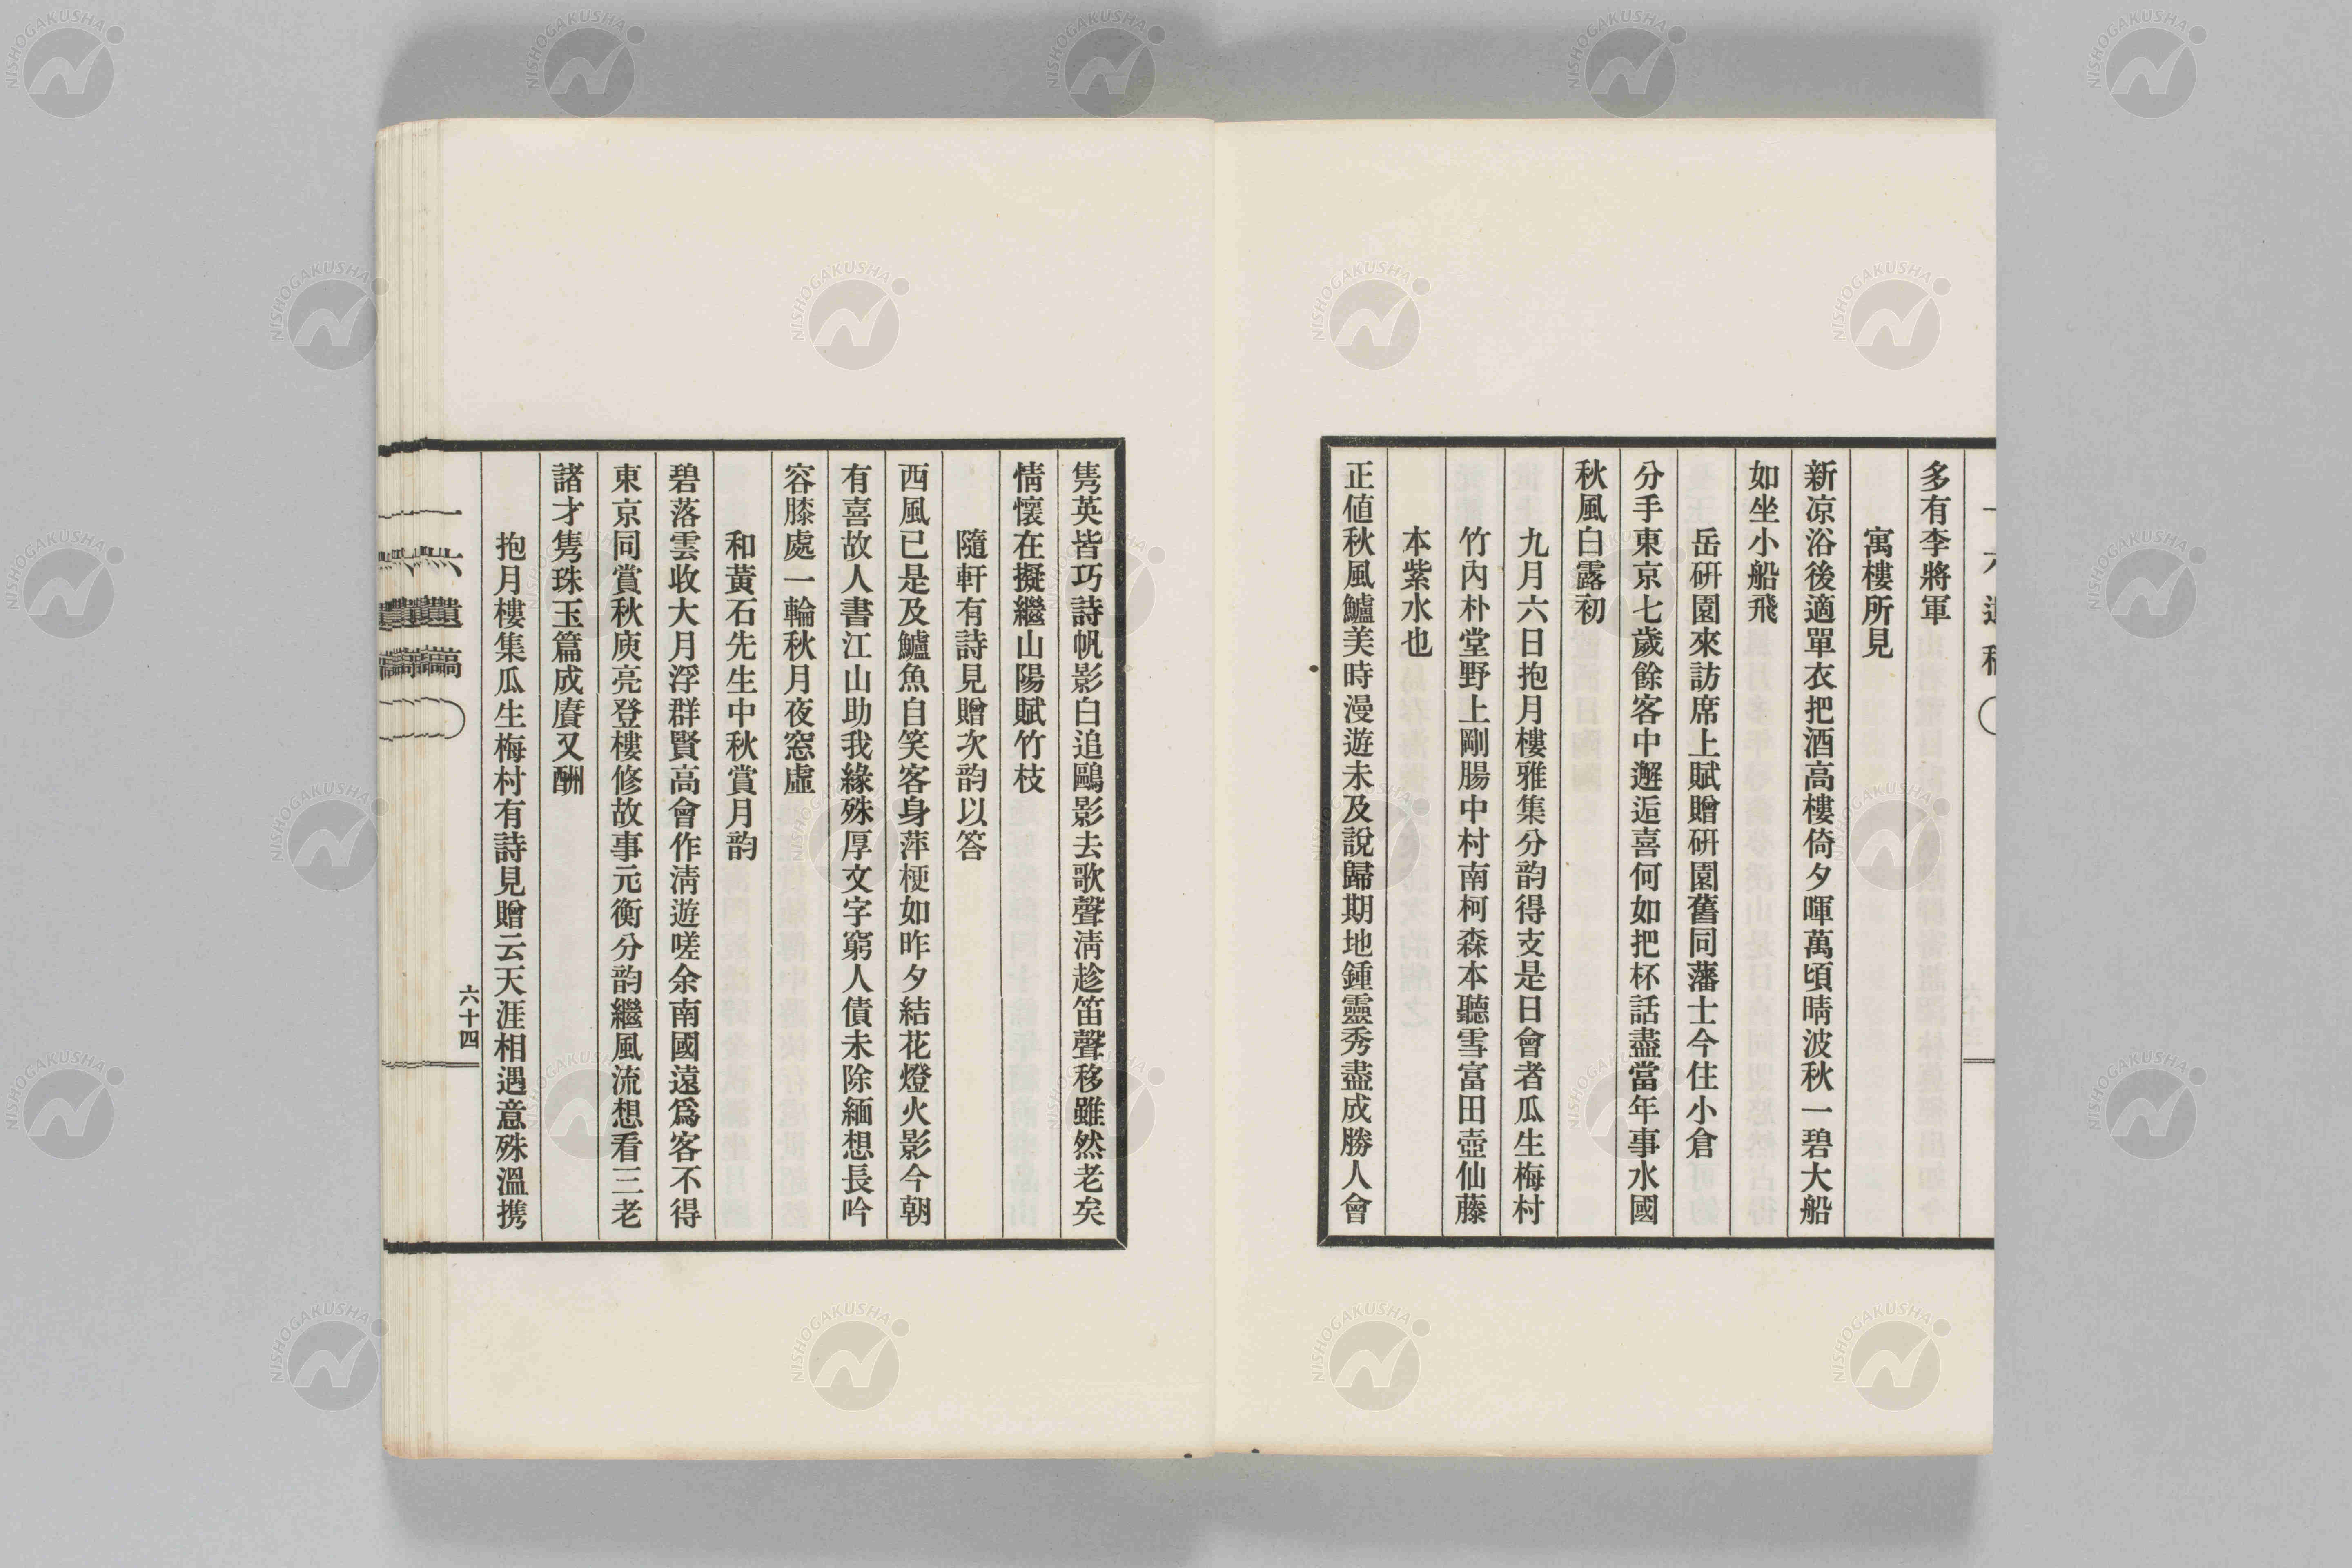 多有李將軍
寓樓所見
新凉浴後適單衣把酒高樓倚夕暉萬頃晴波秋一碧大船
如坐小船飛
岳硏園來訪席上賦贈硏園舊同藩士今住小倉
分手東京七歲餘客中邂逅喜何如把杯話盡當年事水國
秋風白露初
九月六日抱月樓雅集分韵得支是日會者瓜生梅村
竹內朴堂野上剛腸中村南柯森本聽雪富田壺仙藤
本紫水也
正値秋風鱸美時漫遊未及說歸期地鍾靈秀盡成勝人會
隽英皆巧詩帆影白追鷗影去歌聲淸趁笛聲移雖然老矣
情懷在擬繼山陽賦竹枝
隨軒有詩見贈次韵以答
西風已是及鱸魚自笑客身萍梗如昨夕結花燈火影今朝
有喜故人書江山助我緣殊厚文字窮人債未除緬想長吟
容膝處一輪秋月夜窓虛
和黃石先生中秋賞月韵
碧落雲收大月浮群賢高會作淸遊嗟余南國遠爲客不得
東京同賞秋庾亮登樓修故事元衡分韵繼風流想看三老
諸才隽珠玉篇成賡又酬
抱月樓集瓜生梅村有詩見贈云天涯相遇意殊溫携
一六遺稿
六十四
NISHOGAKUSHA